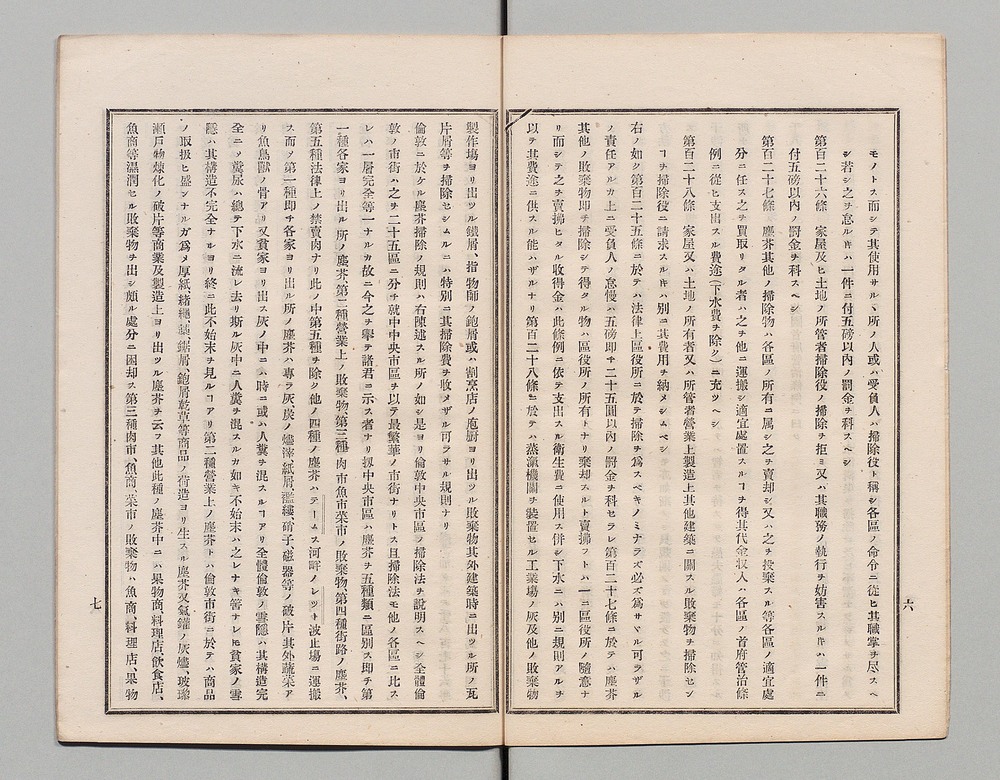 モノトス而シテ其使用サルヽ所ノ人或ハ受負人ハ掃除役ト稱シ各區ノ命令ニ從ヒ其職掌ヲ尽スヘ
シ若シ之ヲ怠ルキハ一件ニ付五磅以内ノ罰金ヲ科スヘシ
第百二十六條　家屋及ヒ土地ノ所管者掃除役ノ掃除ヲ拒ミ又ハ其職務ノ執行ヲ妨害スルキハ一件ニ
付五磅以内ノ罰金ヲ科スヘシ
第百二十七條　塵芥其他ノ掃除物ハ各區ノ所有ニ属シ之ヲ賣却シ又ハ之ヲ投棄スル等各區ノ適宜處
分ニ任ス之ヲ買取リタル者ハ之ヲ他ニ運搬シ適宜處置スルヿヲ得其代金収入ハ各區ノ首府管治條
例ニ從ヒ支出スル費途(下水費ヲ除ク)ニ充ツヘシ
第百二十八條　家屋又ハ土地ノ所有者又ハ所管者營業上製造上其他建築ニ關スル敗棄物ヲ掃除セン
ヿヲ掃除役ニ請求スルキハ別ニ其費用ヲ納メシムベシ
右ノ如ク第百二十五條ニ於テハ法律上區役所ニ於テ掃除ヲ爲スベキノミナラズ必ズ爲サヾル可ラザル
ノ責任アルカ上ニ受負人ノ怠慢ハ五磅即チ二十五圓以内ノ罰金ヲ科セラレ第百二十七條ニ於テハ塵芥
其他ノ敗棄物即チ掃除シテ得タル物ハ區役所ノ所有トナリ棄却スルト賣拂フトハ一ニ區役所ノ隨意ナ
リ而シテ之ヲ賣拂ヒタル収得金ハ此條例ニ依テ支出スル衛生費ニ使用ス併シ下水ニハ別ニ規則アルヲ
以テ其費途ニ供スル能ハザルナリ第百二十八條ニ於テハ蒸滊機關ヲ装置セル工業場ノ灰及他ノ敗棄物
六
製作場ヨリ出ツル鐵屑、指物師ノ鉋屑或ハ割烹店ノ庖厨ヨリ出ツル敗棄物其外建築時ニ出ツル所ノ瓦
片屑等ヲ掃除セシムルニハ特別ニ其掃除費ヲ收メザル可ラサル規則ナリ
倫敦ニ於ケル塵芥掃除ノ規則ハ右陳述スル所ノ如シ是ヨリ倫敦中央市區ノ掃除法ヲ説明スベシ全體倫
敦ノ市街ハ之ヲ二十五區ニ分チ就中中央市區ヲ以テ最繁華ノ市街ナリトス且掃除法モ他ノ各區ニ比ス
レハ一層完全等一ナルカ故ニ今之ヲ擧テ諸君ニ示ス者ナリ扨中央市區ハ塵芥ヲ五種類ニ區別ス即チ第
一種各家ヨリ出ル所ノ塵芥、第二種營業上ノ敗棄物第三種肉市魚市菜市ノ敗棄物第四種街路ノ塵芥、
第五種法律上ノ禁賣肉ナリ此ノ中第五種ヲ除ク他ノ四種ノ塵芥ハテームス河畔ノレッツト波止場ニ運搬
ス而ノ第一種即チ各家ヨリ出ル所ノ塵芥ハ専ラ灰炭ノ燼滓紙屑、襤褸、硝子、磁器等ノ破片其外蔬菜ア
リ魚鳥獸ノ骨アリ又貧家ヨリ出ス灰ノ中ニハ時ニ或ハ人糞ヲ混スルヿアリ全體倫敦ノ雪隱ハ其構造完
全ニノ糞尿ハ總テ下水ニ流レ去リ斯ル灰中ニ人糞ヲ混スルガ如キ不始末ハ之レナキ筈ナレモ貧家ノ雪
隱ハ其構造不完全ナルヨリ終ニ此不始末ヲ見ルヿアリ第二種營業上ノ塵芥トハ倫敦市街ニ於テハ商品
ノ取扱ヒ盛ンナルガ爲メ厚紙、緒縄、藁、鋸屑、鉋屑乾草等商品ノ荷造ヨリ生スル塵芥又氣鑵ノ灰燼、玻瓈
瀬戸物煉化ノ破片等商業及製造上ヨリ出ツル塵芥ヲ云フ其他此種ノ塵芥中ニハ果物商、料理店、飲食店、
魚商等濕潤セル敗棄物ヲ出シ頗ル處分ニ困却ス第三種肉市、魚商、菜市ノ敗棄物ハ魚商、料理店、果物
七